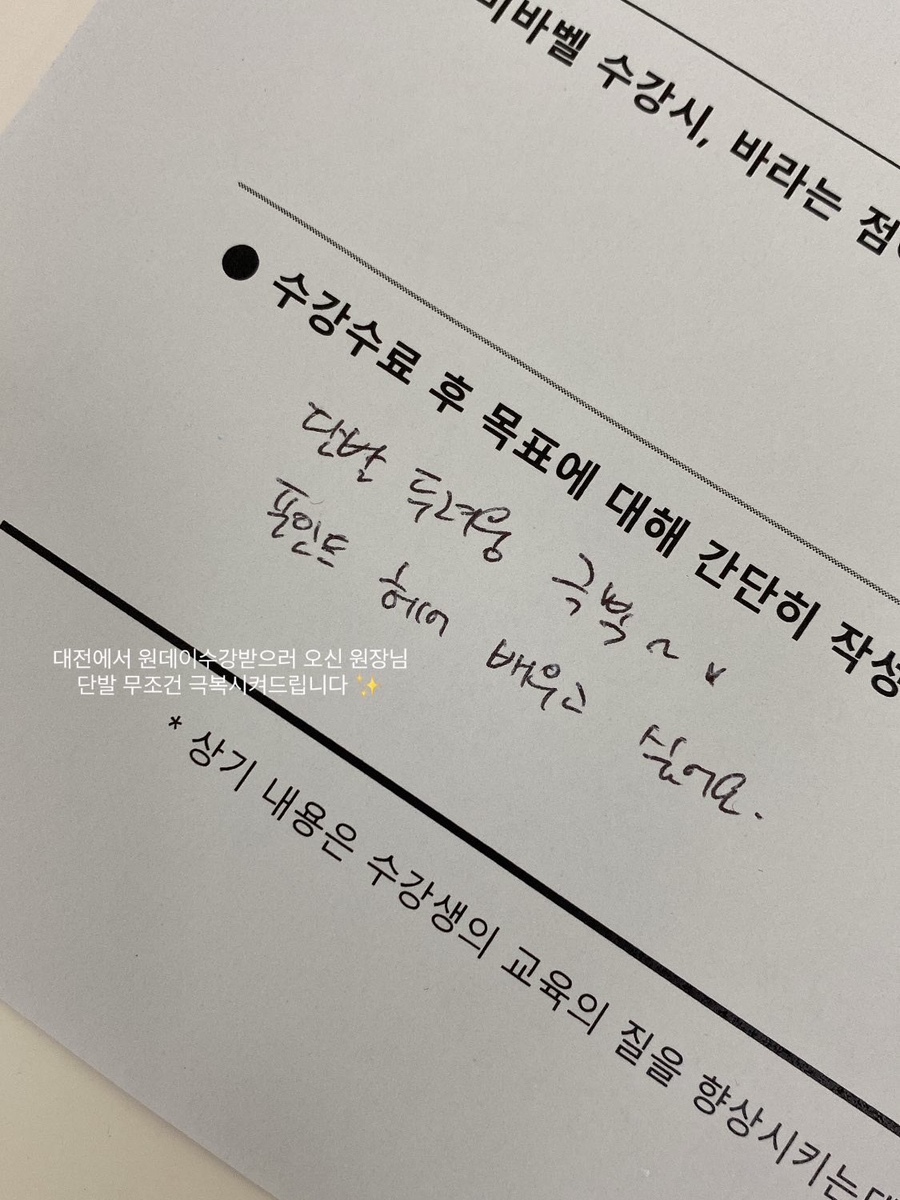 비바벨 수강시, 바라는 점
● 수강수료 후 목표에 대해 간단히 작성
단발 두려움 극복~ v
포인트 헤어 배우고 싶어요.
대전에서 원데이수강받으러 오신 원장님
단발 무조건 극복시켜드립니다 ✨
* 상기 내용은 수강생의 교육의 질을 향상시키는데